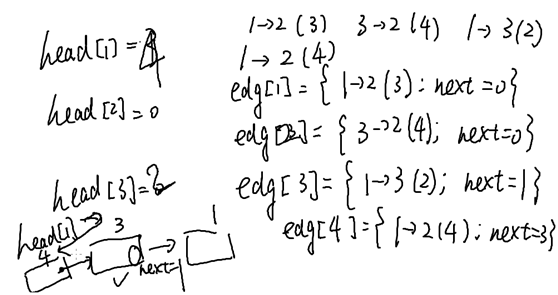 1→2 (3) 3→2 (4) 1→ 3(2)
1→ 2 (4)
head[1] = 4
edg[1] = { 1→2 (3) ; next =0}
head [2] = 0
edg[2] = { 3→2 (4); next=0}
head [3] = 2
edg[3] = { 1→3 (2); next=1}
edg[4] = { 1→2 (4) ; next=3}
head[1]
4 3 1
0
next=1